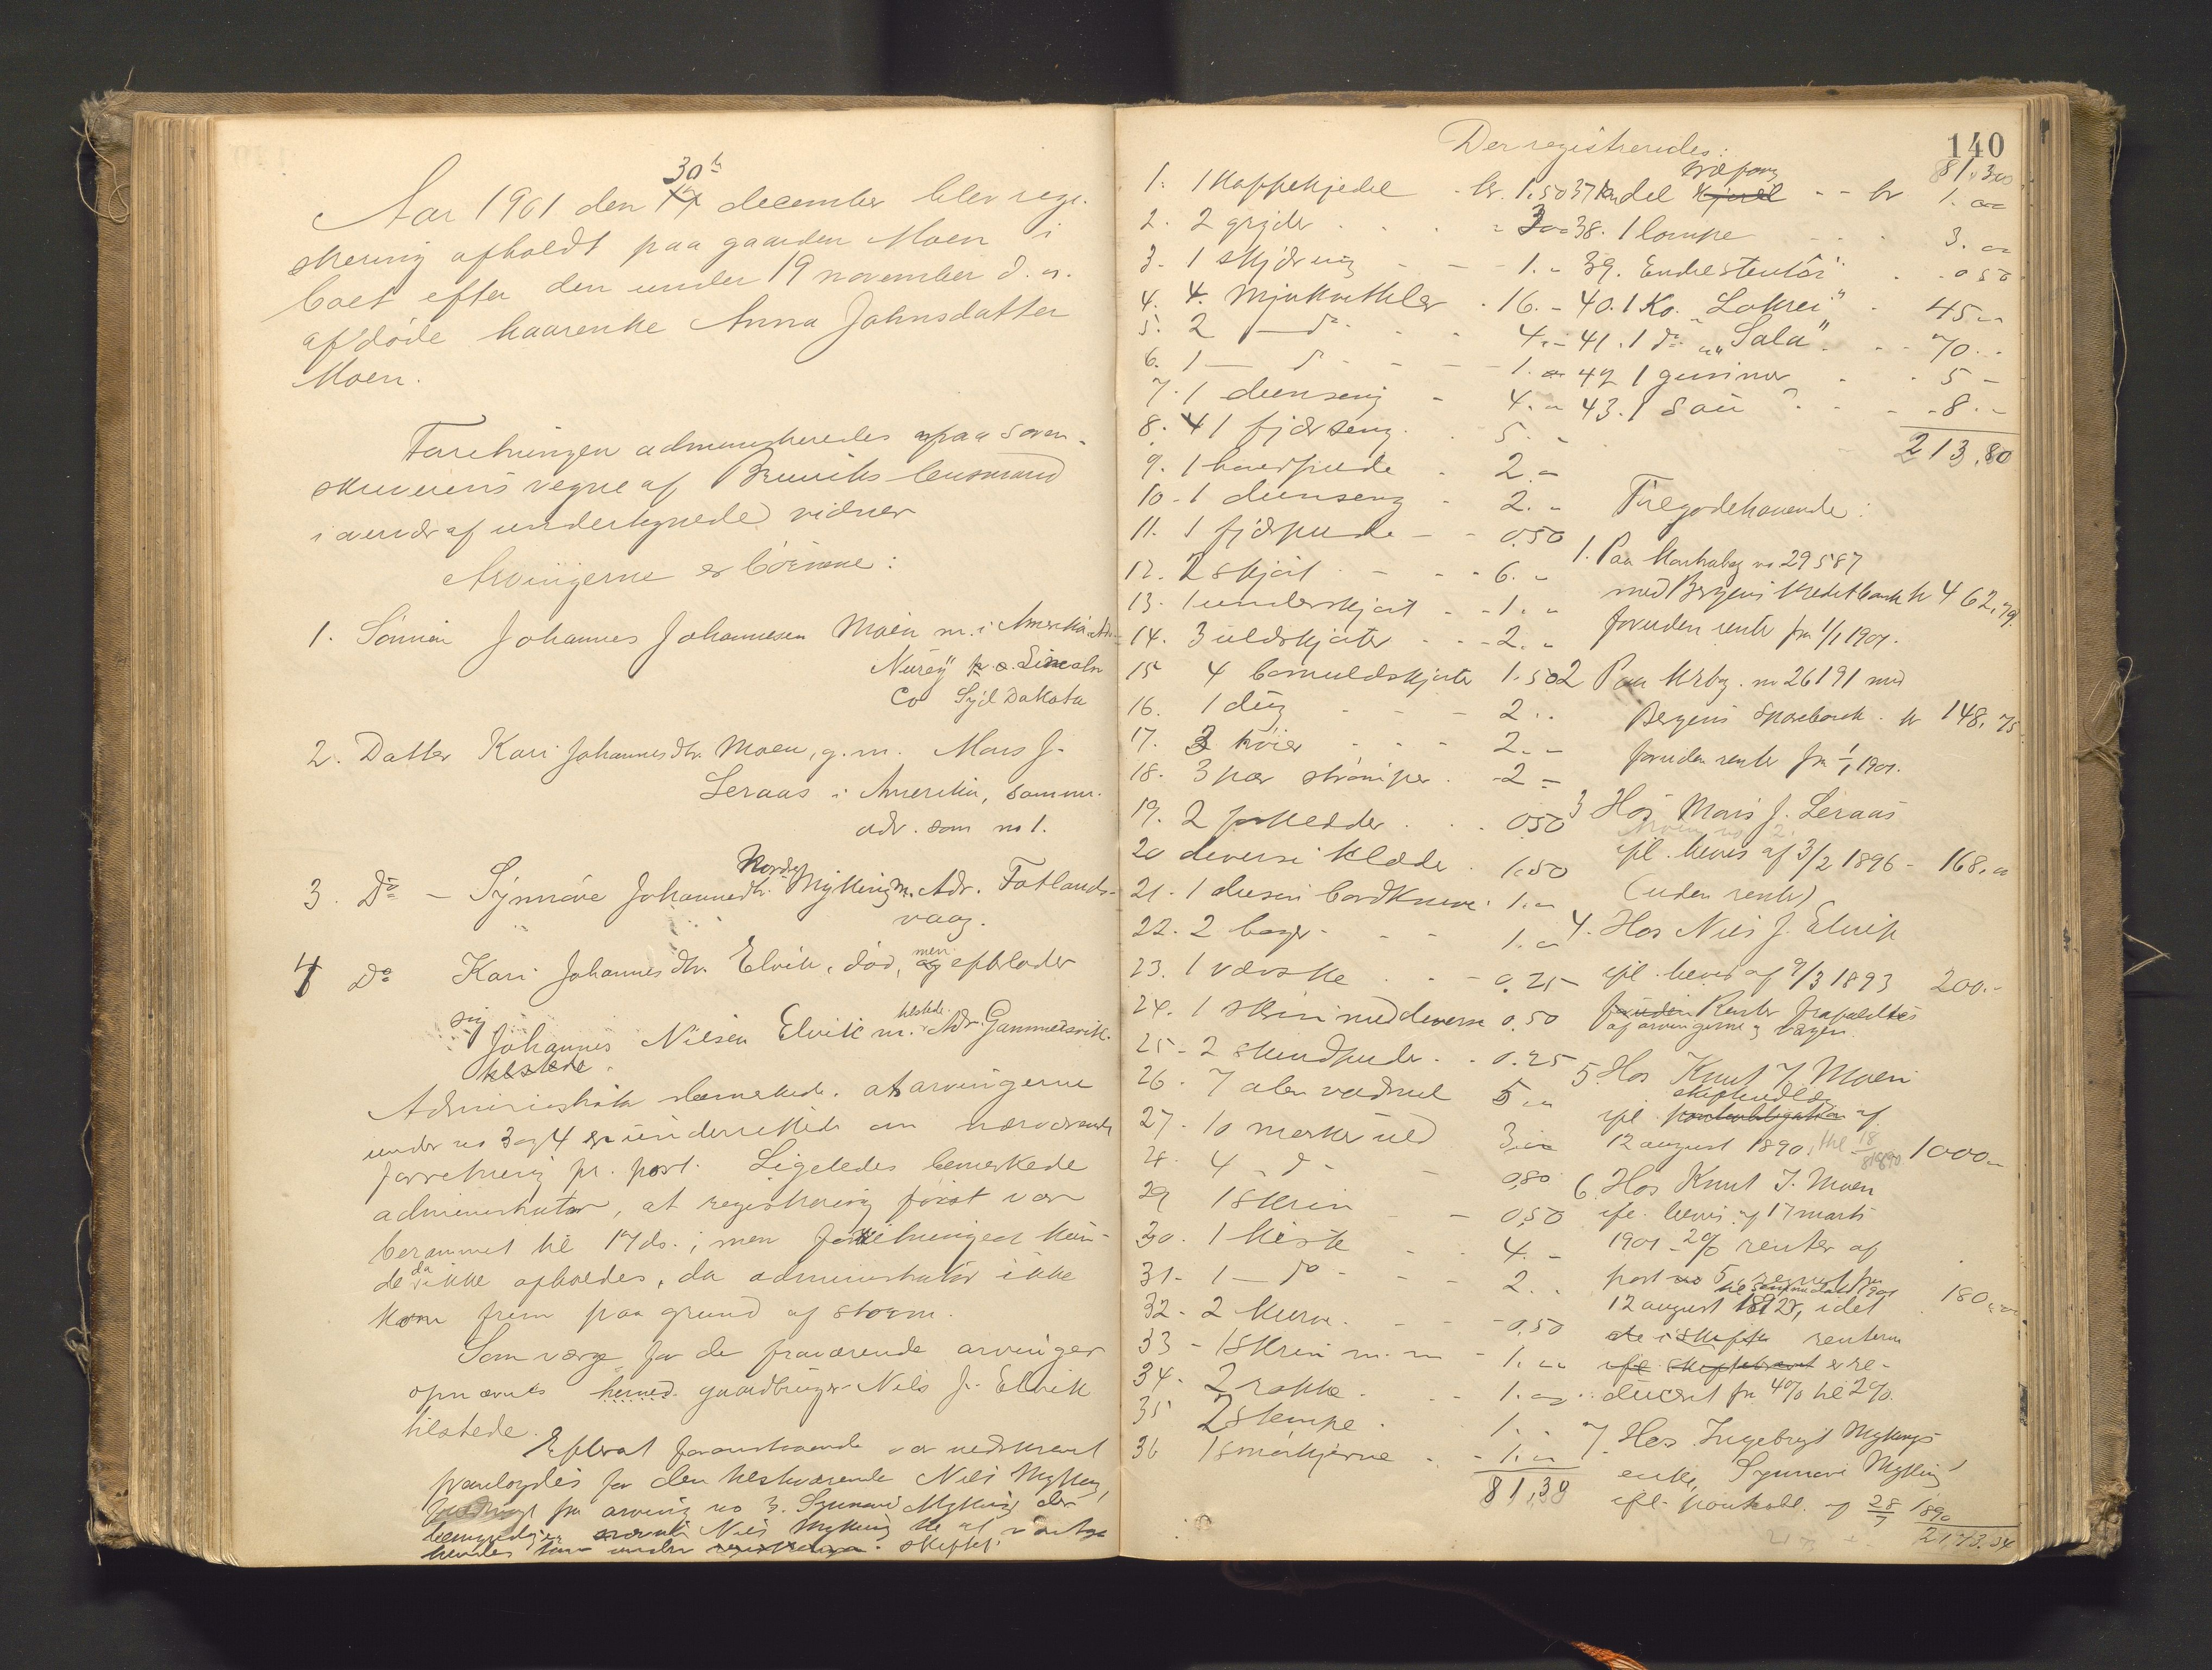 Aar 1901 den 30te december blev regi-
strering afholdt paa gaarden Moen i
boet efter den under 19 november d. a.
afdøde kaarenke Anna Johnsdatter
Moen.
Forretningen administreredes paa soren-
skriverens vegne af Bruviks lensmand
i overvær af undertegnede vidner
Arvingerne er børnene:
1. Sønnen Johannes Johannesen Moen m. i Amerika Adr.
Lincoln
Co Syd Dakota
2. Datter Kari Johannesdtr. Moen, g. m. Mons J.
Leraas i Amerika, samme
adr. som no 1.
3. Do - Synnøve Johannesdtr. Nordre Myking m. Adr. Fotlands-
vaag.
4 Do Kari Johannesdtr. Elvik, død, men efterlader
sig
Johannes Nilsen Elvik m. tilstede. Adr. Gammersvik.
tilstede.
Administrator bemerkede, at arvingerne
under no 3 og 4 er underrettede om nærværende
forretning pr. post. Ligeledes bemerkede
administrator, at registrering først var
berammet til 17 ds.; men forretningen kun-
de da ikke afholdes, da administrator ikke
kom frem paa grund af storm.
Som værge for de fraværende arvinger
opnævnes herved gaardbruger Nils J. Elvik
tilstede.
Efterat foranstaaende var nedskrevet
fremlagdes for den tilstedeværende Nils Myking,
fra arving no 3. Synnøve Myking der
bemyndiger Nils Myking til at vareta
hendes tarv under skiftet.
140
Der registreredes:
1. 1 Kaffekjedel - kr. 1.50
2. 2 gryder - 3
3. 1 skjøring - 1. -
4. 4. Mjølkekitteler - 16. -
5. 2 — do - 4. -
6. 1 — do - 1. -
7. 1 dunseng - 4. -
8. 1 fjærseng. 5. -
9. 1 hovedpude - 2. -
10 - 1 dunseng - 2. -
11. 1 fjærpude - - 0.50
12. 2 skjørt - - - 6. -
13. 1 underskjørt - - 1. -
14. 3 uldskjorter - - 2. -
15 4 bomuldskjorter 1.50
16. 1 dug - - - 2. .
17. 3 huer - - - 2. -
18. 3 par strømper. - 2 -
19. 2 forklæder . . 0.50
20 diverse klæde . 1.50
21. 1 dusin bordknive . 1. -
22. 2 bøger - - - 1. -
23. 1 væske . - - 0.25
24. 1 skrin med diverse 0.50
25 - 2 skindpuder . . 0.25
26. 7 alen vadmel 5 -
27. 10 merker uld 3. -
28. 4 - do - - 0.80
29 1 skrin - - 0.50
30. 1 kiste - - 4. -
31 - 1 — do - - - 2. .
32 - 2 kurve. - - - 0.50
33 - 1 skrin m. m - 1. -
34. 2 rokke. - - 1. -
35 2 . 1. .
36 1 smørkjerne - - 1. -
81,30
81,30
37 En del træfang - - kr 1. -
38. 1 lampe - - . 3. -
39. . - 0.50
40. 1 Ko. "Lokrei" . 45 -
41. 1 do "Sala" . - - 70. .
42 1 - . 5 -
43. 1 Sau . . - 8. -
213,80
Tilgodehavende:
1. Paa Kontrabog no 29587
med Bergens Kreditbank kr 462,79.
foruden renter fra 1/1 1901.
2 Paa Ktrbog. no 26191 med
Bergens Sparebank. kr 148,75
foruden renter fra 1/1 1901.
3 Hos Mons J. Leraas
ifl. bevis af 3/2 1896 - 168.00
(uden renter)
4. Hos Nils J. Elvik
ifl. bevis af 9/3 1893 200. -
Renter frafaldtes
af arvingerne
5. Hos Knut J. Moen
ifl. af
12 august 1890, 1000 -
6. Hos Knut J. Moen
ifl. bevis af 17 marts
1901 - 2% renter af
post no 5, regnet fra
12 august 1892, idet 180
renterne
er re-
duceret fra 4% til 2%.
7. Hos Ingebrigt Mykings
enke, Synnøve Myking
ifl. pantobl. af 28/7 1890